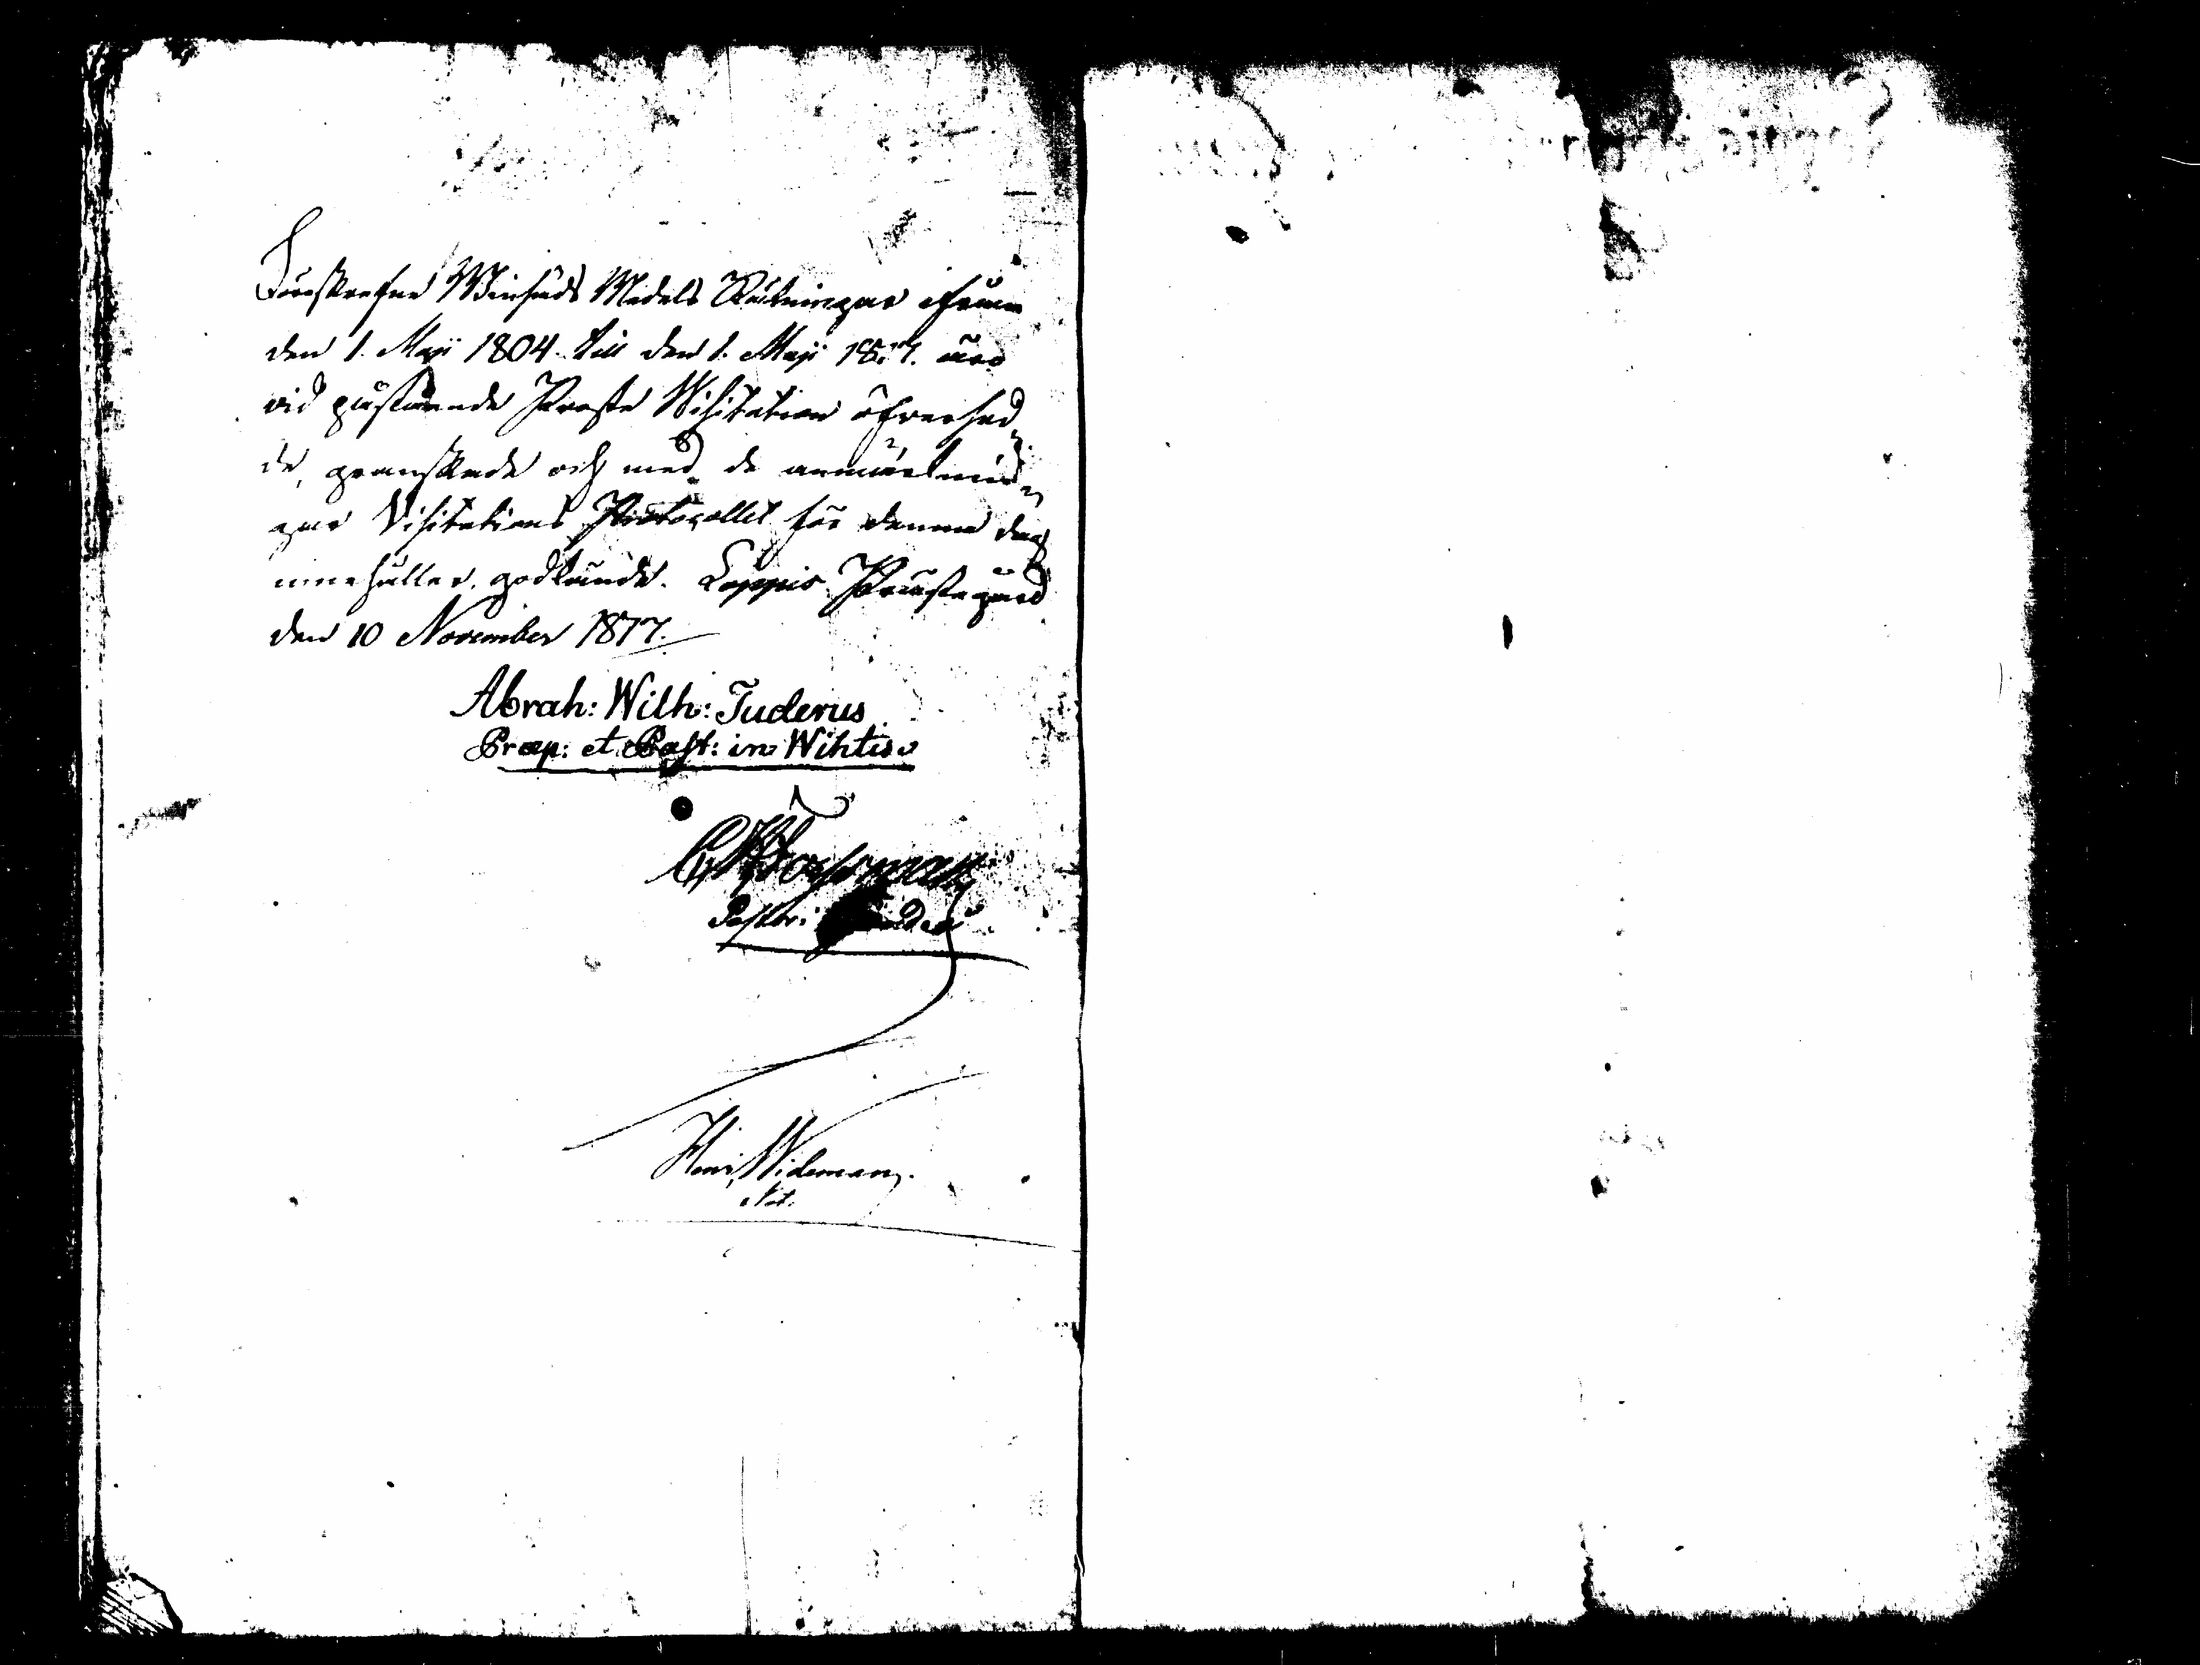 Förestående Winsäds Medels Räkningar ifrån
den 1. Maji 1804 till den 1. Maji 1817. äro
vid påstående Prosts Visitation öfversed
de, granskade och med de anmärknin
gar Visitations Protocollet för denna dag
innehåller, godkände. Loppis Prästegård
den 10 November 1817.
Abrah: Wilh: Tuderus
Præp: et Past: in Wihtis
Pastor i
Henr. Wideman.
Not.